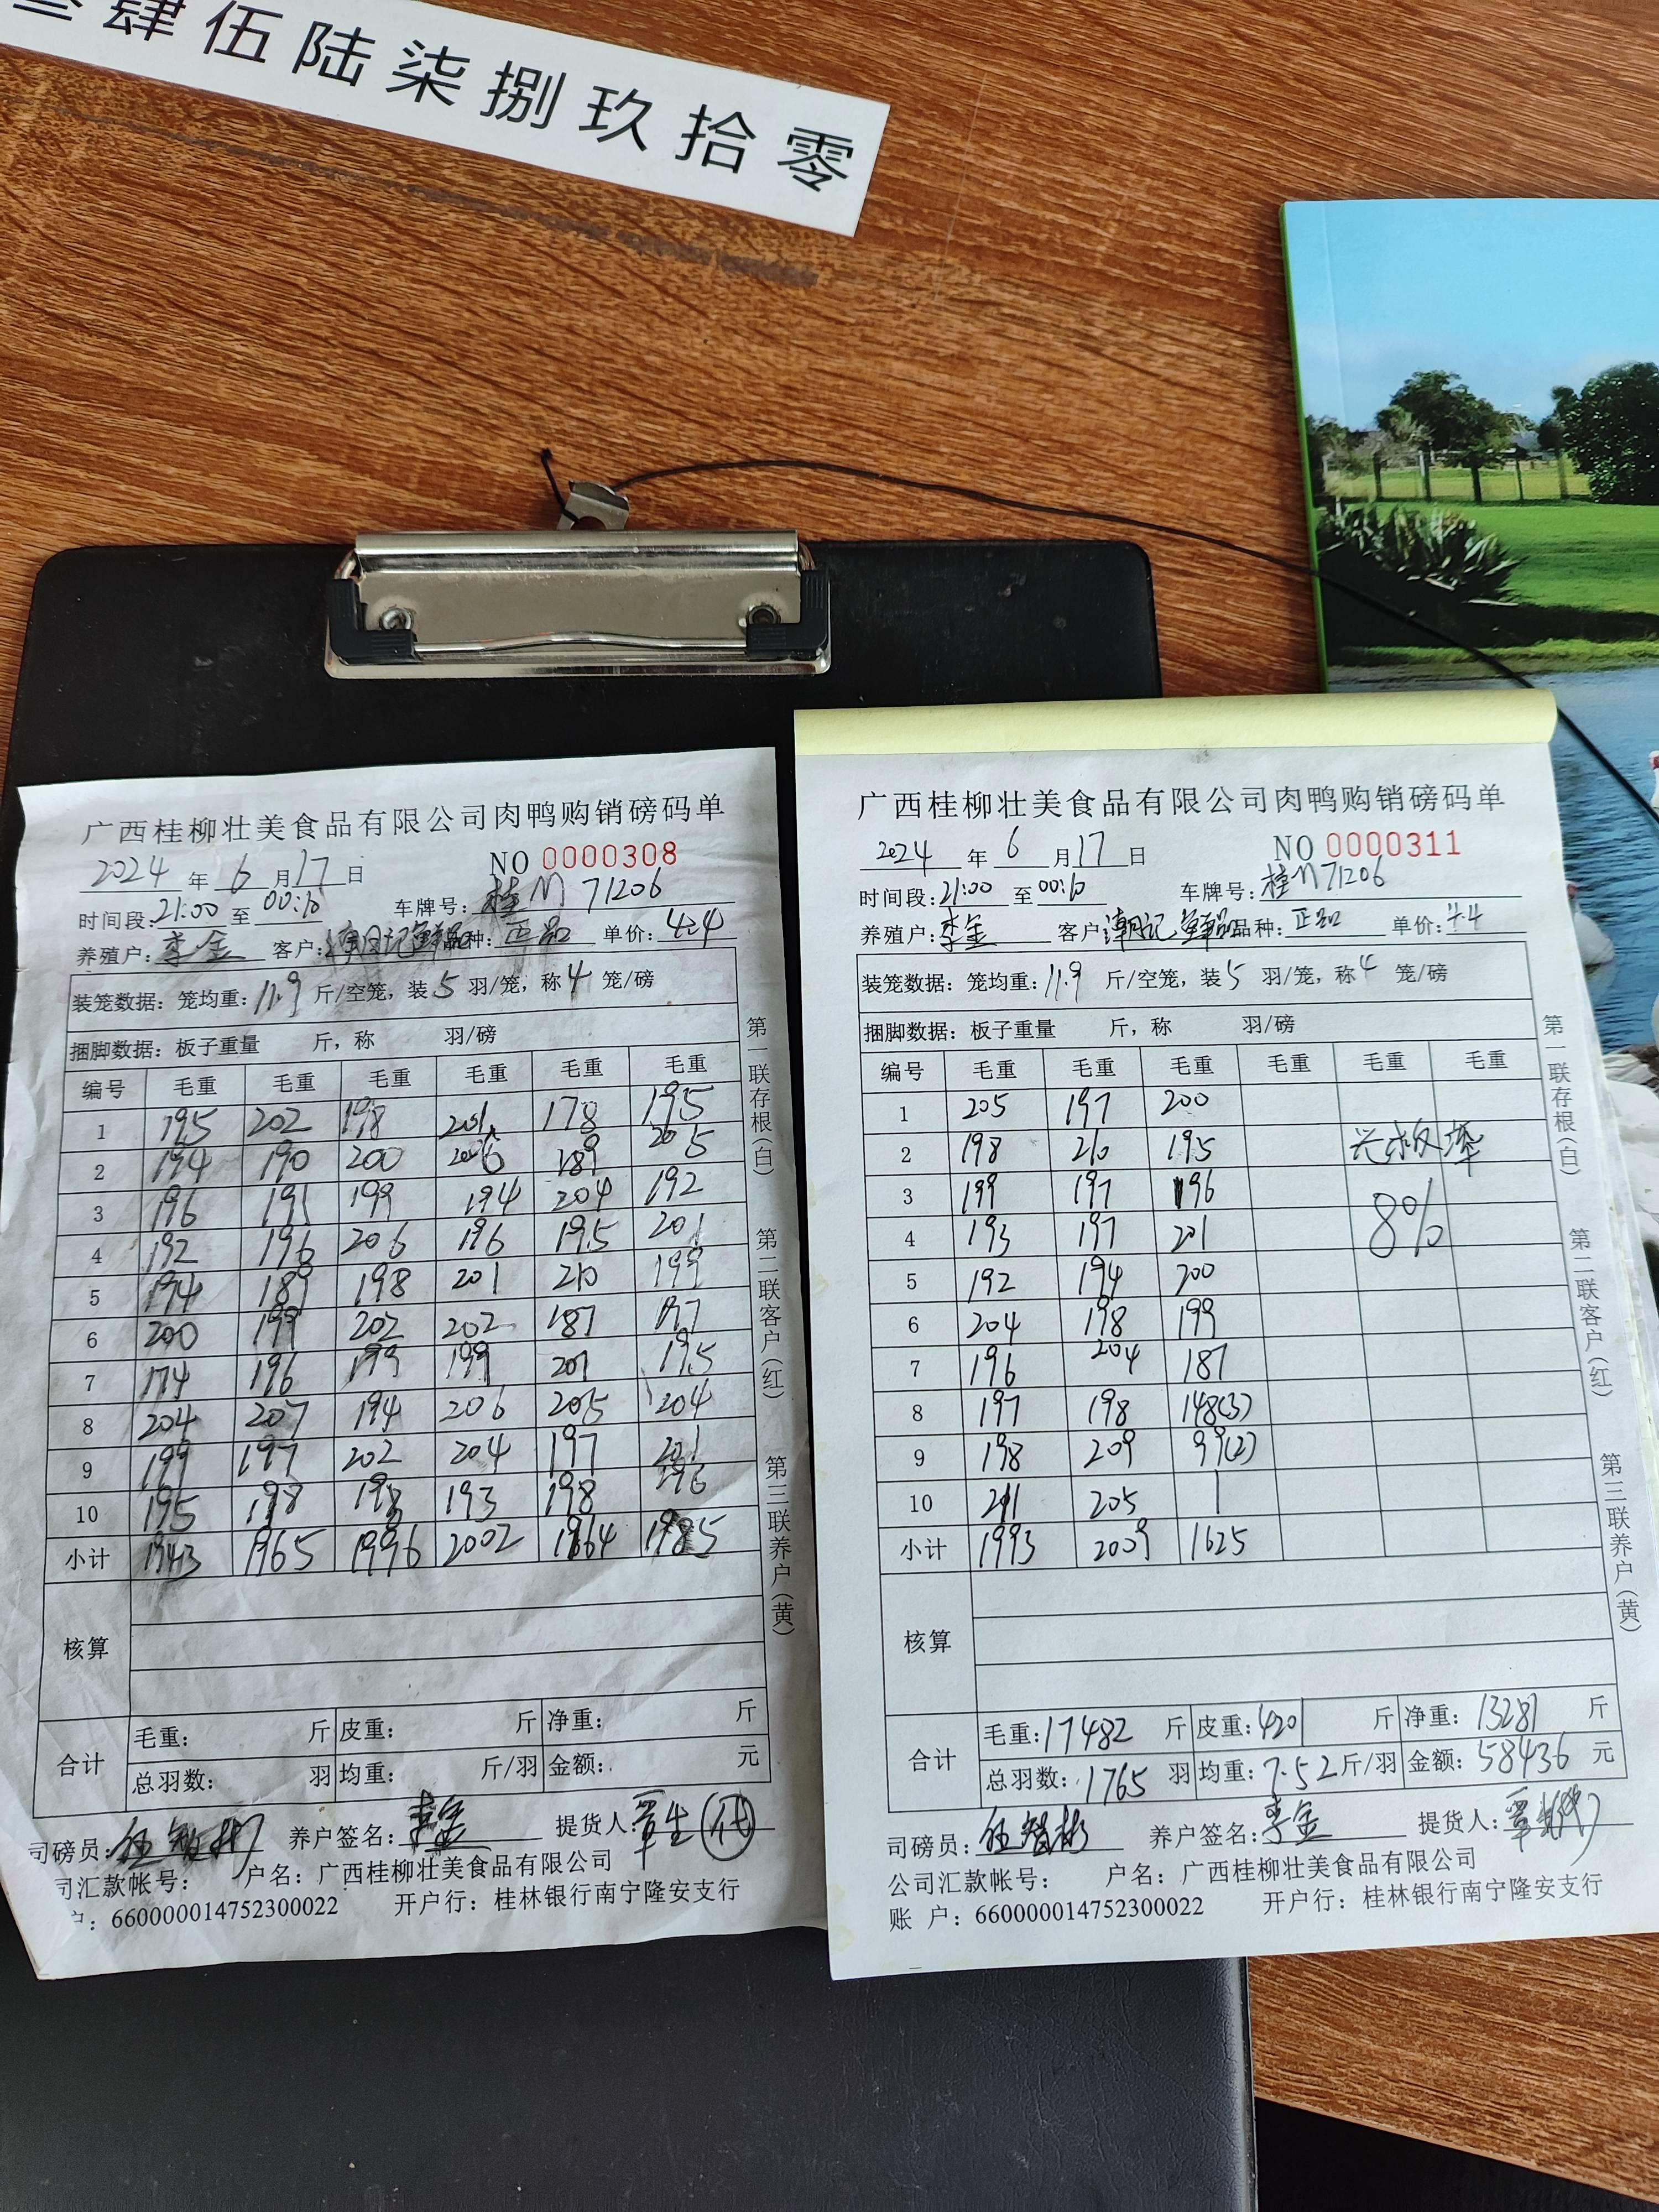 叁肆伍陆柒捌玖拾零
广西桂柳壮美食品有限公司肉鸭购销磅码单
2024 年 6 月 17 日 NO 0000308
时间段:21:00 至 00:10 车牌号:桂M 71206
养殖户:李金 客户: 品种:正品 单价:4.4
装笼数据:笼均重:11.9 斤/空笼,装5 羽/笼,称4 笼/磅
捆脚数据:板子重量 斤,称 羽/磅
编号 毛重 毛重 毛重 毛重 毛重 毛重
1 195 202 198 201 178 195
2 194 190 200 206 189 205
3 196 191 199 194 204 192
4 192 196 206 196 195 201
5 194 189 198 201 210 199
6 200 199 202 202 187 197
7 174 196 199 199 201 195
8 204 207 194 206 205 204
9 199 197 202 204 197 201
10 195 198 198 193 198 196
小计 1943 1965 1996 2002 1964 1985
核算
合计 毛重: 斤 皮重: 斤 净重: 斤
总羽数: 羽 均重: 斤/羽 金额: 元
司磅员: 养户签名:李金 提货人:覃生(代)
司汇款帐号: 户名:广西桂柳壮美食品有限公司
户:660000014752300022 开户行:桂林银行南宁隆安支行
第一联存根(白) 第二联客户(红) 第三联养户(黄)
广西桂柳壮美食品有限公司肉鸭购销磅码单
2024 年 6 月 17 日 NO 0000311
时间段:21:00 至 00:10 车牌号:桂M71206
养殖户:李金 客户: 品种:正品 单价:4.4
装笼数据:笼均重:11.9 斤/空笼,装5 羽/笼,称4 笼/磅
捆脚数据:板子重量 斤,称 羽/磅
编号 毛重 毛重 毛重 毛重 毛重 毛重
1 205 197 200
2 198 210 195
3 199 197 196
4 193 197 201 8%
5 192 194 200
6 204 198 199
7 196 204 187
8 197 198 148(3)
9 198 209 99(2)
10 211 205 1
小计 1993 2009 1625
核算
合计 毛重:17482 斤 皮重:4201 斤 净重:13281 斤
总羽数:1765 羽 均重:7.52 斤/羽 金额:58436 元
司磅员: 养户签名:李金 提货人:覃生(代)
公司汇款帐号: 户名:广西桂柳壮美食品有限公司
账 户:660000014752300022 开户行:桂林银行南宁隆安支行
第一联存根(白) 第二联客户(红) 第三联养户(黄)